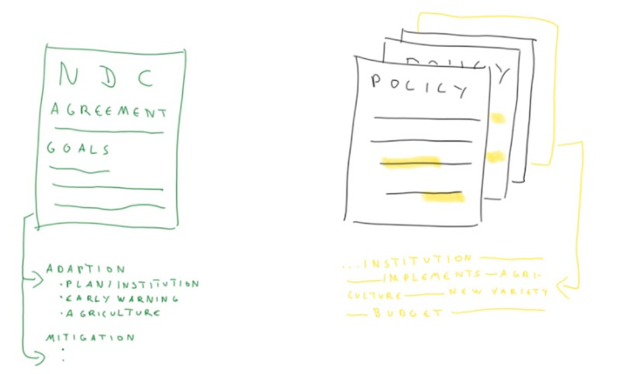 NDC
AGREEMENT
GOALS
ADAPTION
· PLAN/INSTITUTION
· EARLY WARNING
· AGRICULTURE
MITIGATION
:
POLICY
POLICY
...INSTITUTION
IMPLEMENTS — AGRI-
CULTURE — NEW VARIETY
— BUDGET —